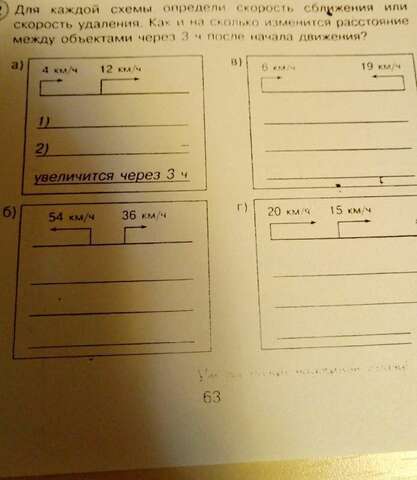 Для каждой схемы определи скорость сближения или
скорость удаления. Как и на сколько изменится расстояние
между объектами через 3 ч после начала движения?
а)
4 км/ч 12 км/ч
1)
2)
увеличится через 3 ч
в)
6 км/ч 19 км/ч
б)
54 км/ч 36 км/ч
г)
20 км/ч 15 км/ч
63